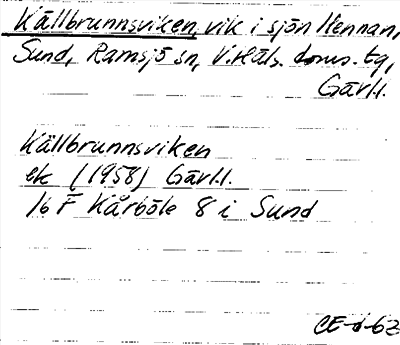 Källbrunnsviken, vik i sjön Hennan,
Sund, Ramsjö sn, V.Häls. doms. tg,
Gävl.l.
Källbrunnsviken
ek (1958) Gävl.l.
16 F Kårböle 8 i Sund
CE-d-63